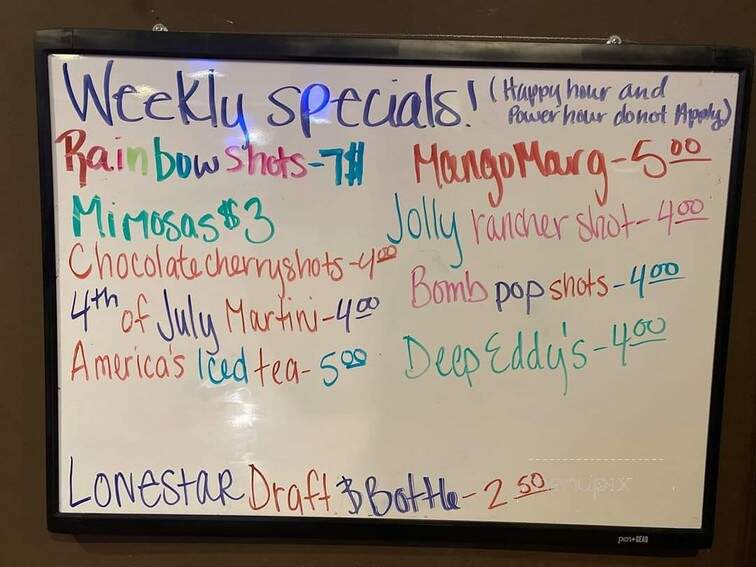 Weekly specials! (Happy hour and
Power hour do not Apply)
Rainbow shots-7$
Mimosas $3
Chocolate cherry shots-4.00
4th of July Martini-4.00
America's Iced tea-5.00
Mango Marg-5.00
Jolly rancher shot-4.00
Bomb pop shots-4.00
Deep Eddy's-4.00
LONESTAR Draft & Bottle-2.50
menupix
pen+GEAR